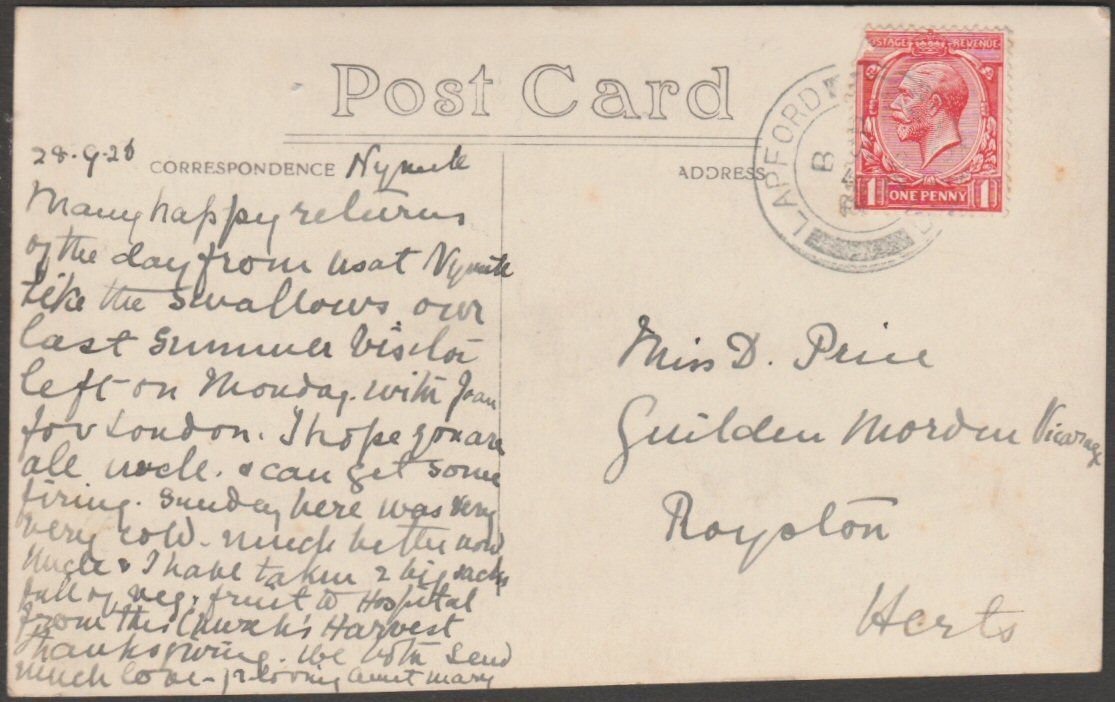 Post Card
CORRESPONDENCE
ADDRESS
28.9.26
Many happy returns
of the day from us at
Like the Swallows our
last Summer Visitor
left on Monday. with Joan
for London. I hope you are
all well. & can get some
firing. Sunday here was very
very cold. much better now
Uncle & I have taken 2 big sacks
full of veg. & fruit to Hospital
from this Church's Harvest
Thanksgiving. We both send
much love - loving aunt Mary
LAPFORD
POSTAGE REVENUE
1 ONE PENNY 1
Miss D. Price
Guilden Morden Vicarage
Royston
Herts